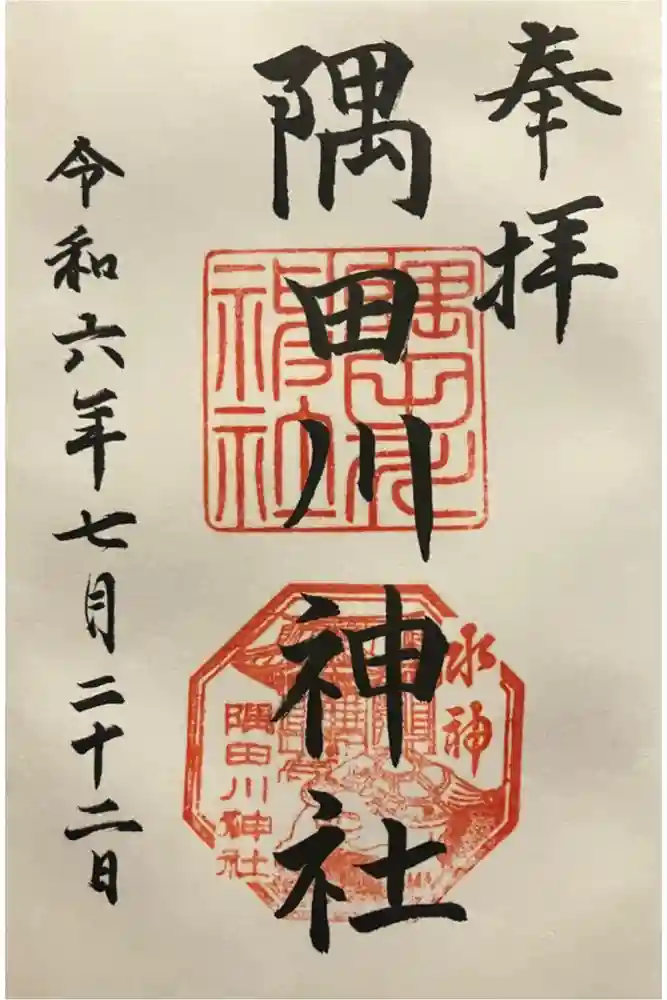 奉拝
隅田川神社
隅田川
神社
水神
隅田川神社
令和六年七月二十二日